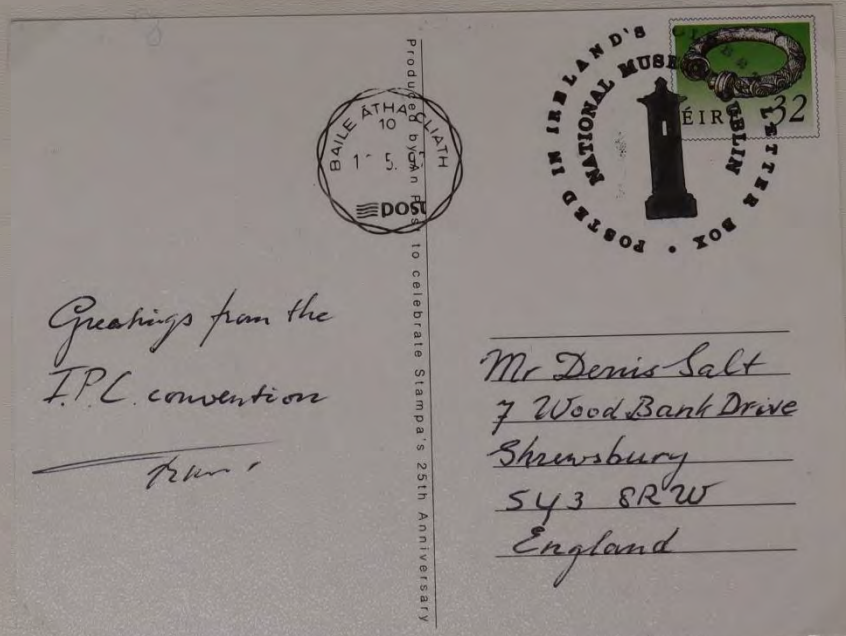 Produced by An Post to celebrate Stampa's 25th Anniversary
BAILE ÁTHA CLIATH
10
5.
post
POSTED IN IRELAND'S LETTER BOX •
NATIONAL MUSEUM DUBLIN
ÉIRE 32
Greetings from the
I.P.C. convention
Mr Denis Salt
7 Wood Bank Drive
Shrewsbury
SY3 8RW
England